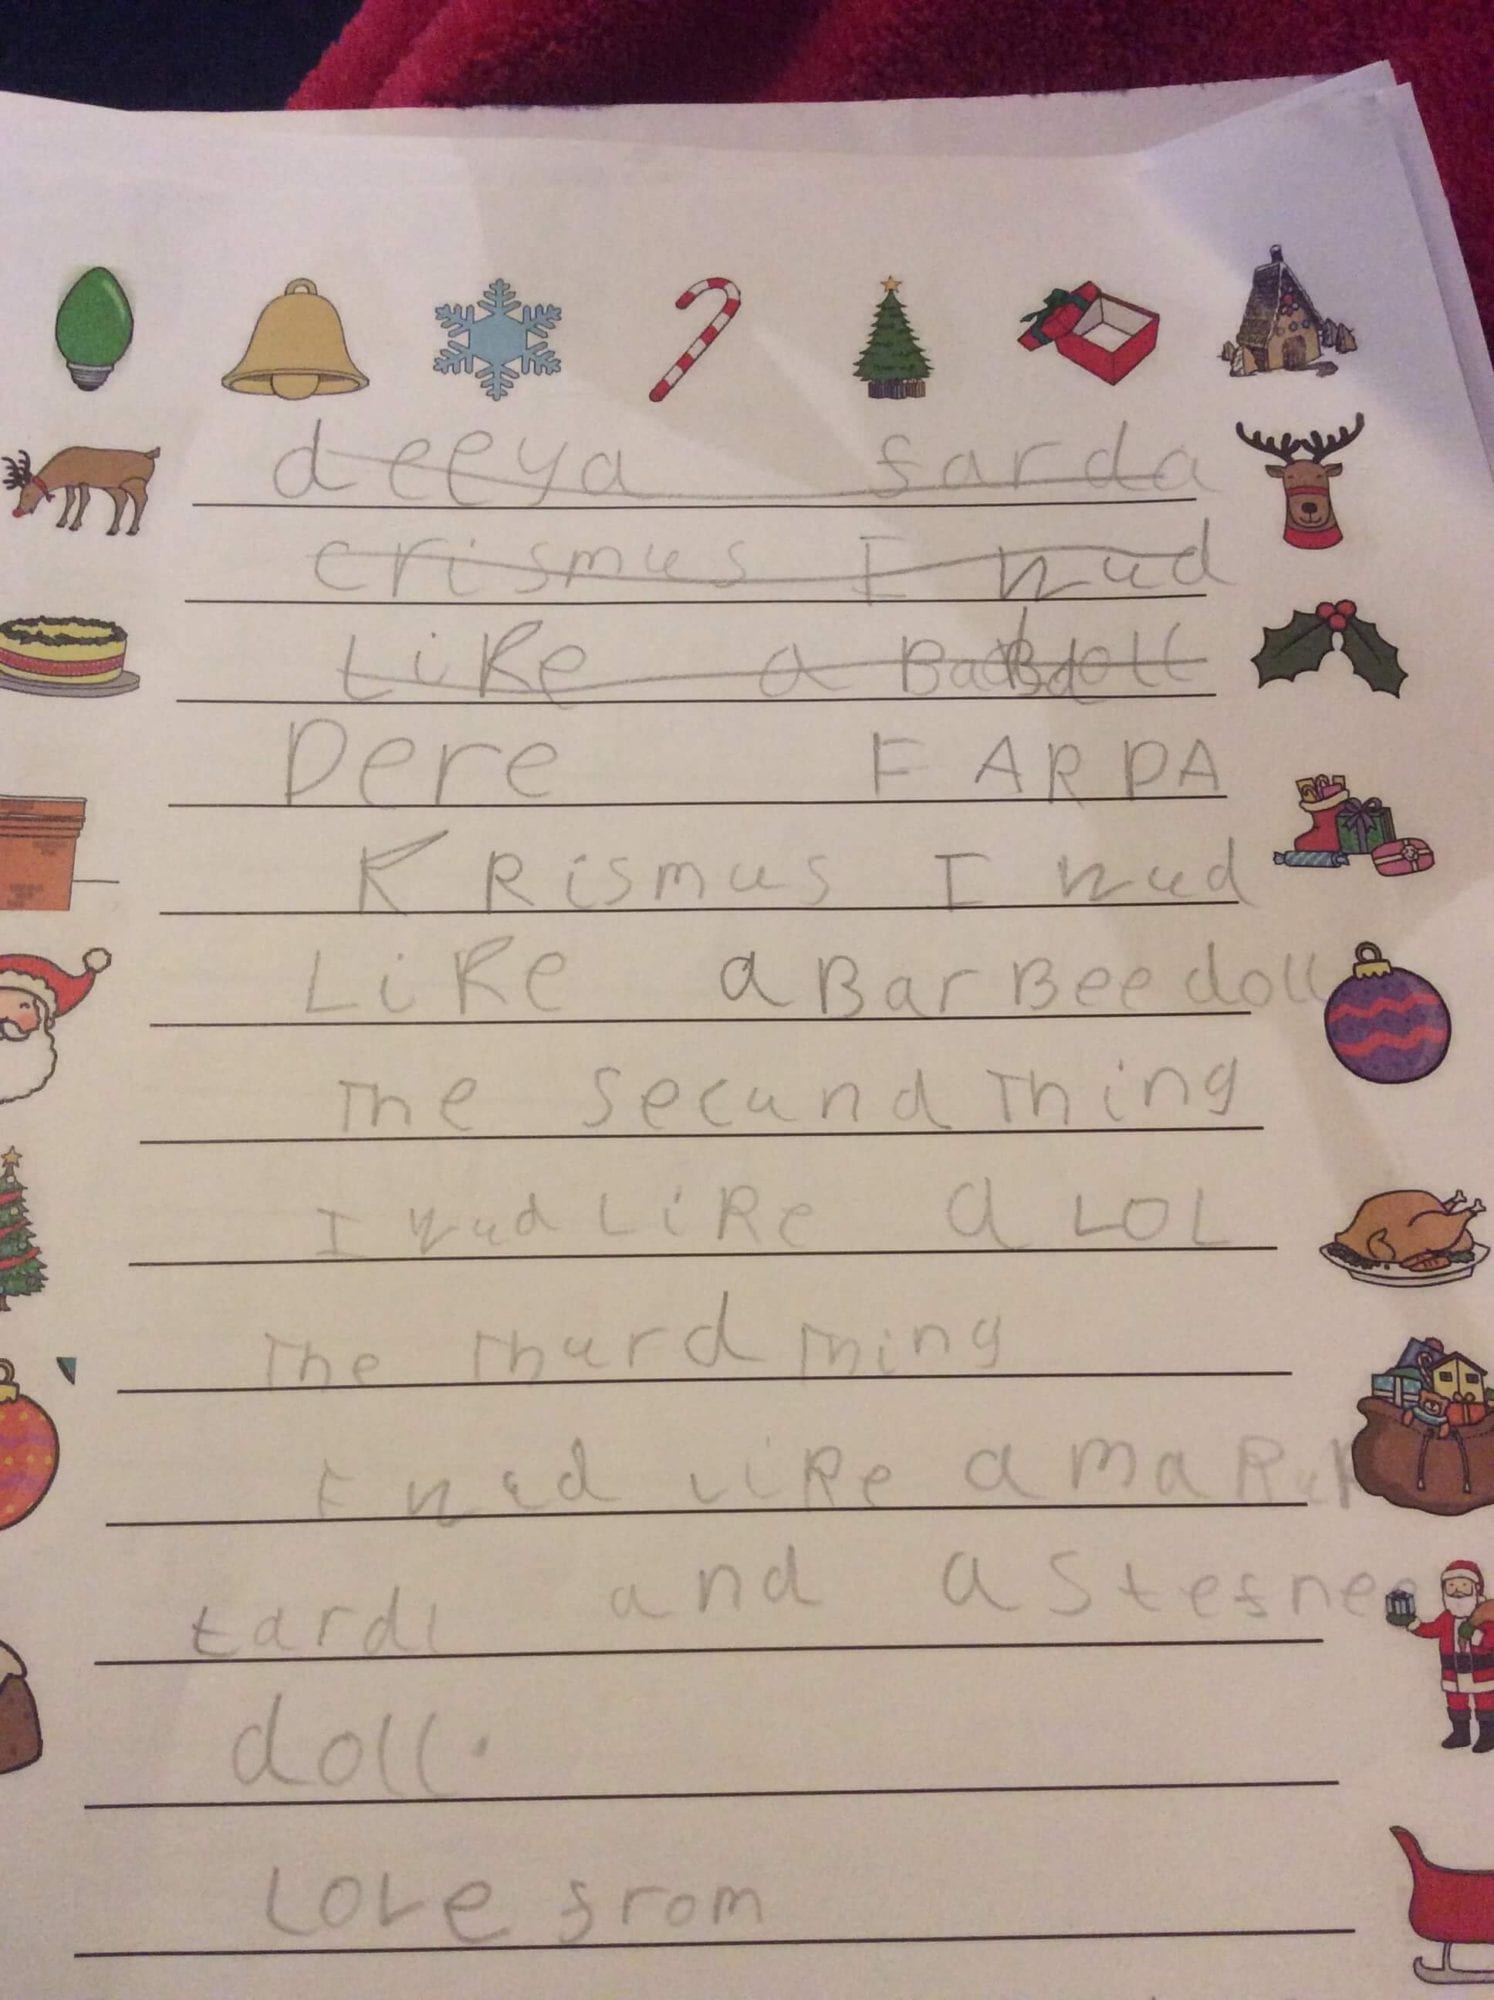 deeya farda
crismus I wud
Like a doll
Dere FARDA
KRismus I wud
LiKe a BarBee doll
The Secund Thing
I wud LiKe a LOL
The Thurd Thing
I wud LiKe a maRuK
tardi and a Stefnee
doll.
Love from